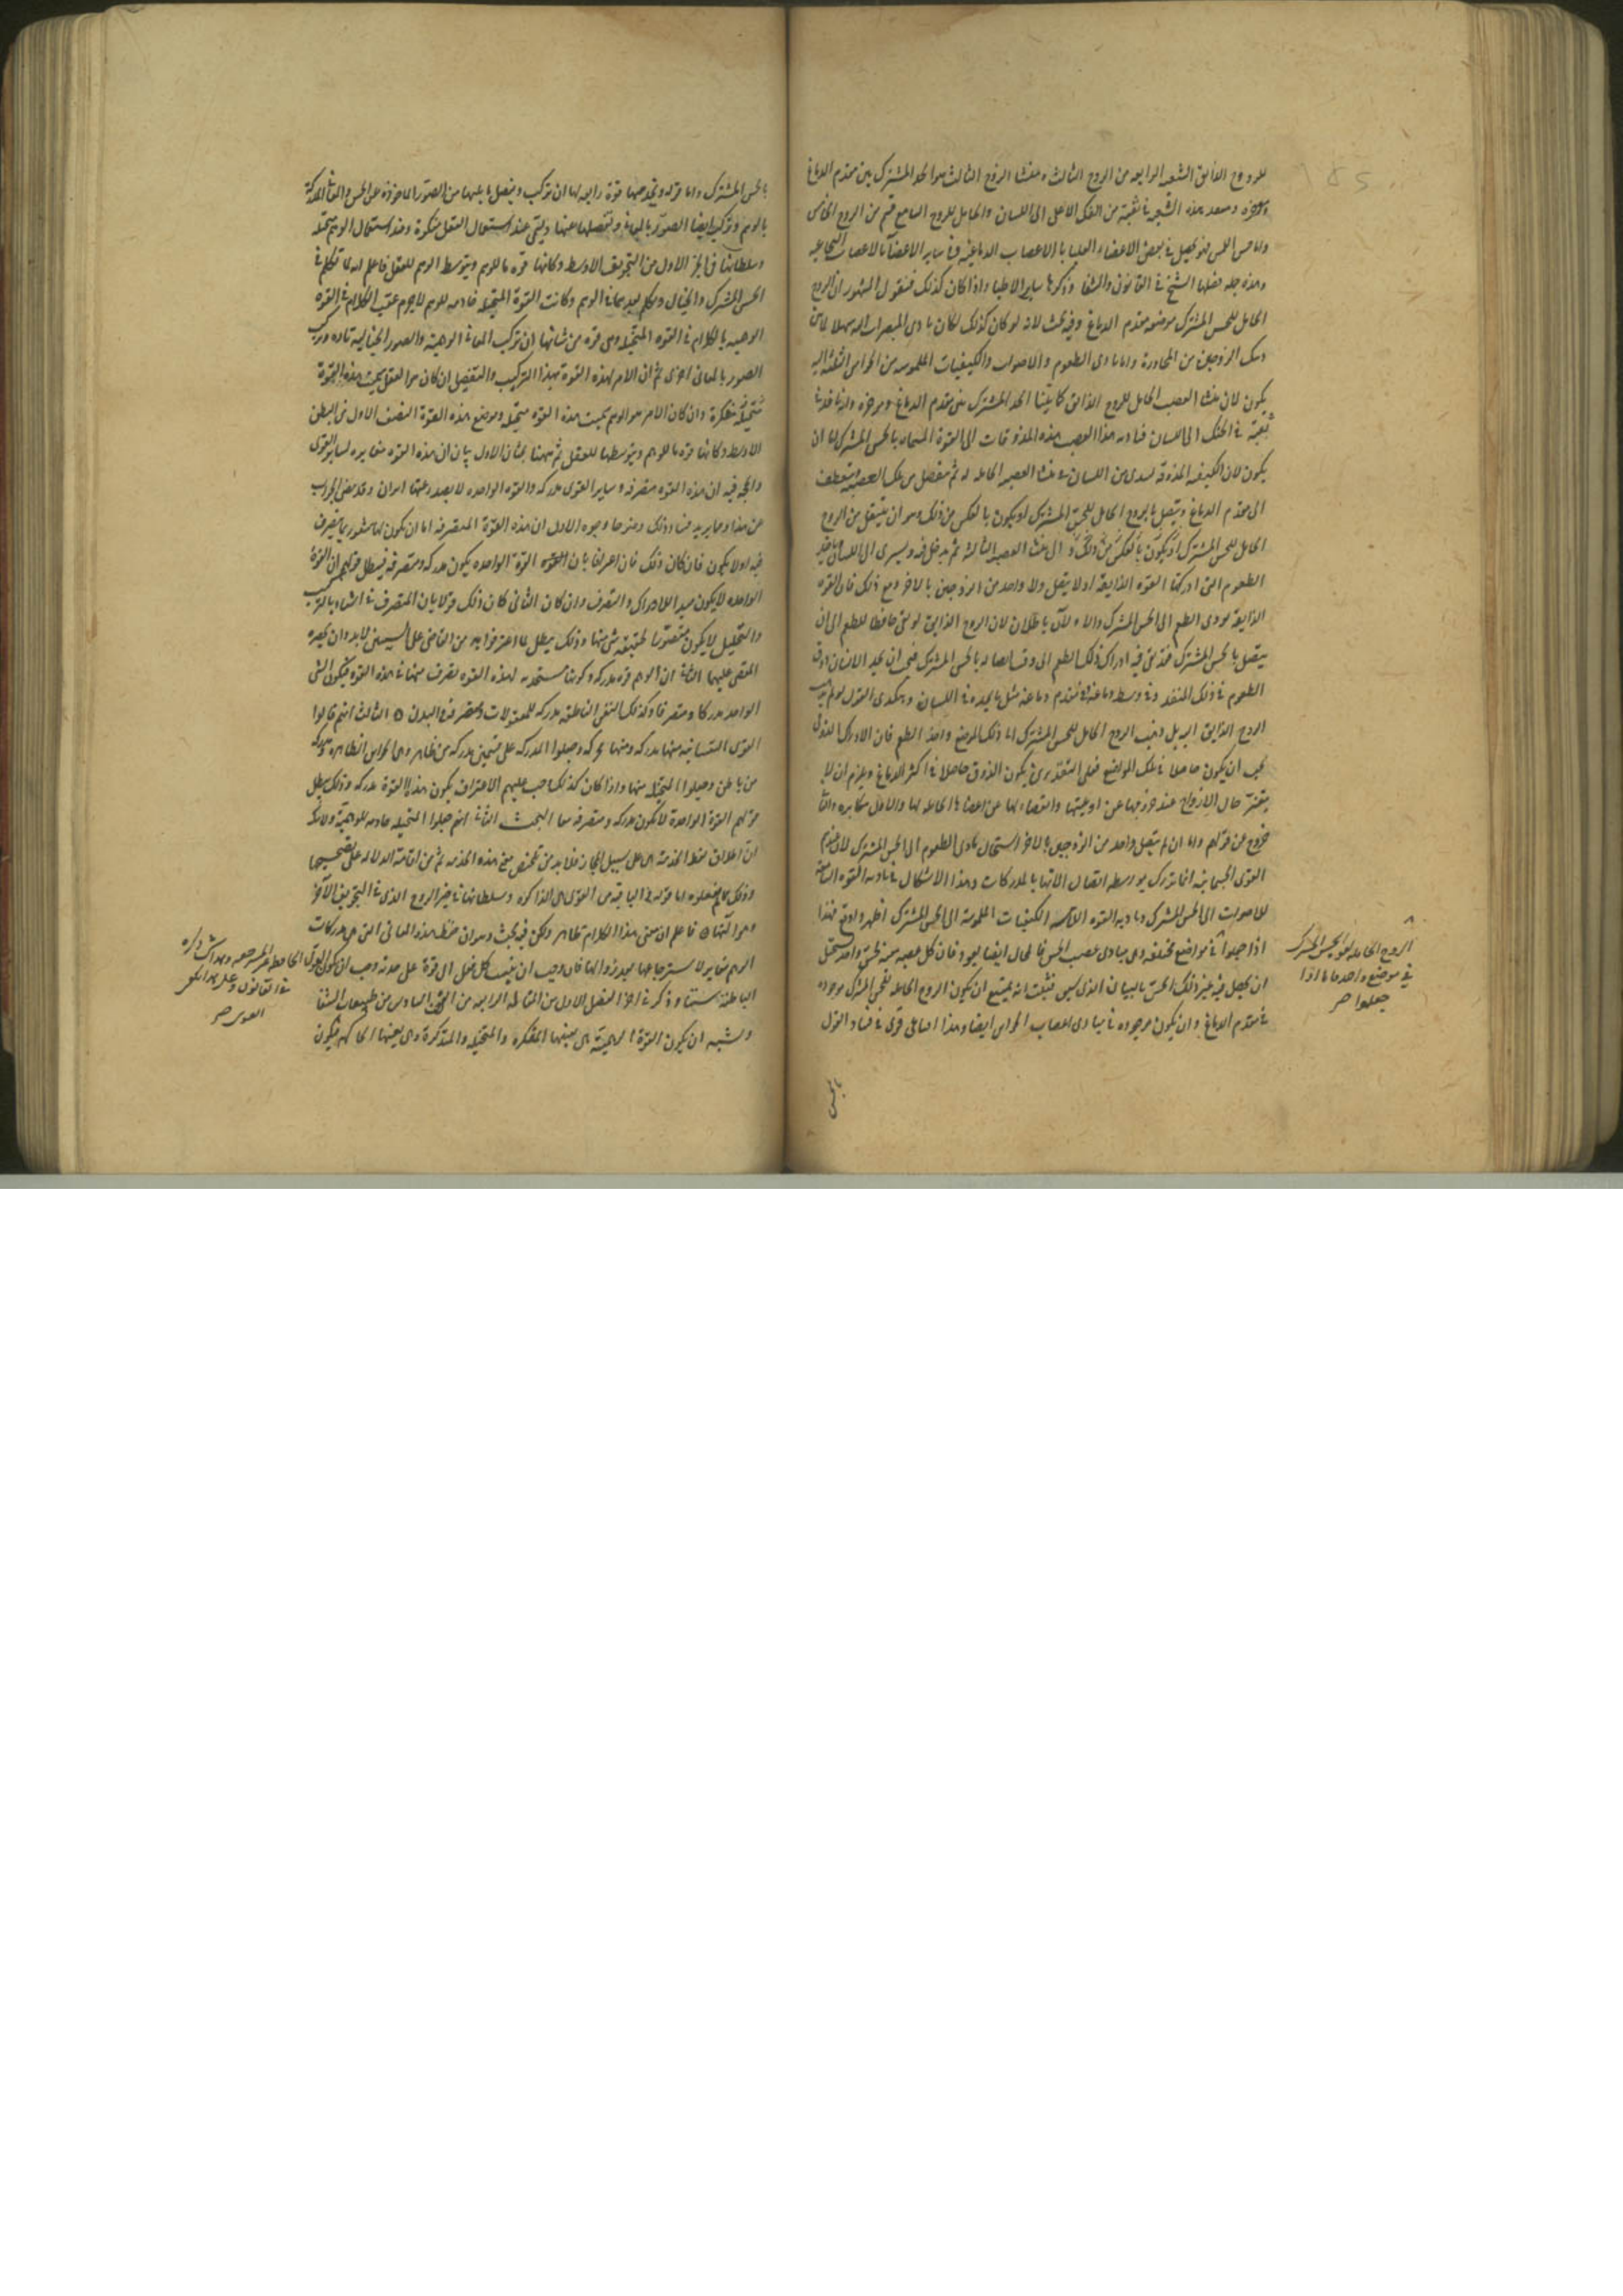 للروح الذائق الشعبه الرابعه من الزوج الثالث ومنشا الزوج الثالث هو الحد المشترك بين مقدم الدماغ
وموخره وسعد هذه الشعبه فى ثقبة من الفك الاعلى الى اللسان والحامل للروح السامع قسم من الزوج الخامس
ولامس اللمس فهو يحصل فى بعض الاعضاء العليا بالاعصاب الدماغيه وفى ساير الاعضاء بالاعصاب النخاعيه
وهذه جملة فصلها الشيخ فى القانون والشفا وذكرها ساير الاطبا واذا كان كذلك فنقول المشهور ان الروح
الحامل للحس المشترك موضعه مقدم الدماغ وفيه بحث لانه لو كان كذلك لكان تادى المبصرات اليه سهلا لما بين
من الزوجين من المجاورة واما تادى الطعوم والاصوات والكيفيات الملموسه من الحواس الثلثه اليه
يكون لان منشا العصب الحامل للروح الذائق كما بيّنا الحد المشترك بين مقدم الدماغ وموخره
ثقبة فى الحنك الى اللسان فتاديه هذا العصب هذه المذوقات الى القوة المسماة بالحس المشترك اما ان
يكون لان الكيفيه المذوقة من اللسان الى منشا العصبه الحامله له ثم تنفصل من تلك العصبة وتنعطف
الى مقدم الدماغ وتتصل بالروح الحامل للحس المشترك او يكون بالعكس من ذلك وهو ان ينتقل من الروح
الحامل للحس المشترك او يكون بالعكس من ذلك الى منشا العصبه الثالثه ثم يدخل فيه ويسرى الى اللسان
الطعوم التى ادركتها القوه الذايقة او لا يتصل ولا واحد من الزوجين بالاخر ومع ذلك فان القوه
الذايقه تودى الطعم الى الحس المشترك والاولان باطلان لان الروح الذايق لو بقى حافظا للطعم الى ان
يتصل بالحس المشترك فقد بقى فيه ادراك ذلك الطعم الى وقت اتصاله بالحس المشترك فيجب ان يجد الانسان ذوق
الطعوم فى ذلك المنفذ وفى وسط دماغه او مقدم دماغه مثل ما يجده فى اللسان وهكذى القول لو لم يذهب
الروح الذايق اليه بل ذهب الروح الحامل للحس المشترك الى ذلك الموضع واخذ الطعم فان الادراك الذوقى
يجب ان يكون حاصلا فى تلك المواضع فعلى التقديرين يكون الذوق حاصلا فى اكثر الدماغ ويلزم ان لا
يتغير حال الارواح عند خروجها عن اوعيتها وانفصالها عن اعضائها الحامله لها والاول مكابره والثانى
خروج عن قولهم واما ان لم يتصل واحد من الزوجين بالاخر استحال تادى الطعوم الى الحس المشترك لان عندهم
القوى الجسمانيه انما تدرك بواسطه اتصال الاتها بالمدركات وهذا الاشكال فى تاديه القوه السامعة
للاصوات الى الحس المشترك وتاديه القوه اللامسه الكيفيات الملموسة الى الحس المشترك اظهر واقوى فهذا
اذا جعلوا فى مواضع مختلفه وهى مبادى عصب الحس فالمحال ايضا يعود فان كل عصبه معينه لحس واحد يستحيل
ان يحصل فيه غير ذلك الحس بالبيان الذى سبق فثبت انه يمتنع ان يكون الروح الحامله للحس المشترك موجوده
فى مقدم الدماغ وان يكون موجوده فى مبادى اعصاب الحواس ايضا وهذا قوى فى فساد القول
الروح الحامله لقوه الحس المشترك
فى موضع واحد فاما اذا
جعلوا صح
بالحس
بالحس المشترك واما قوله ويخدمها قوة رابعه لها ان تركب وتفصل ما يليها من الصور الماخوذه عن الحس والمعانى المدركة
بالوهم وتركب ايضا الصور بالمعانى وتفصلها عنها وتسمى عند استعمال العقل مفكرة وعند استعمال الوهم متخيله
وسلطانها فى الجزء الاول من التجويف الاوسط وكانها قوه ما للوهم وبتوسط الوهم للعقل فاعلم انه لما تكلم فى
الحس المشترك والخيال وتكلم بعدهما فى الوهم وكانت القوة المتخيله خادمه للوهم لا جرم عقب الكلام فى القوه
الوهميه بالكلام فى القوه المتخيله وهى قوه من شانها ان تركب المعانى الوهمية والصور الخياليه تاره وتركب
الصور بالمعانى اخرى ثم ان الامر لهذه القوة بهذا التركيب والتفصيل ان كان هو العقل سميت هذه القوة
مفكرة وان كان الامر هو الوهم سميت هذه القوه متخيله وموضع هذه القوة النصف الاول من البطن
الاوسط وكانها قوه ما للوهم وبتوسطها للعقل ثم ههنا بحثان الاول بيان ان هذه القوه مغايره لساير القوى
والحجه فيه ان هذه القوه متصرفه وساير القوى مدركه والقوه الواحده لا يصدر عنها امران وقد مضى الجواب
عن هذا ومما يزيد فساد ذلك وضوحا وجوه الاول ان هذه القوة المتصرفه اما ان يكون لها شعور بما يتصرف
فيه او لا يكون فان كان ذلك فان اعترافا بان القوة الواحده يكون مدركه ومتصرفه فيبطل قولهم ان القوة
الواحده لا يكون مبدا للادراك والتصرف وان كان الثانى كان ذلك قولا بان المتصرف فى الشىء بالتركيب
والتحليل لا يكون متصورا لحقيقه شى منها وذلك يبطل ما اعترفوا به من ان القاضى على الشيئين لا بد وان يحضره
المقضى عليهما الثانى ان الوهم قوه مدركه وكونها مستخدمه لهذه القوه تصرف منها فى هذه القوه فيكون الشى
الواحد مدركا ومتصرفا وكذلك النفس الناطقه مدركه للمعقولات ومتصرفه فى البدن ۞ الثالث انهم قالوا
القوى النفسانيه منها مدركه ومنها محركه وجعلوا المدركه على قسمين مدركه من ظاهر وهى الحواس الظاهره ومدركه
من باطن وجعلوا المتخيله منها واذا كان كذلك وجب عليهم الاعتراف بكون هذه القوة مدركه وذلك يبطل
قولهم القوة الواحدة لا تكون مدركه ومتصرفه معا البحث الثانى انهم جعلوا المتخيله خادمه للوهمية ولا شك
ان اطلاق لفظ الخدمه هى على سبيل المجاز فلا بد من تلخيص معنى هذه الخدمه ثم من اقامة الدلاله على تصحيحها
وذلك مما لم يفعلوه اما قوله والباقيه من القوى هى الذاكره وسلطانها فى حيز الروح الذى فى التجويف الاخير
وهو آلتها ۞ فاعلم ان معنى هذا الكلام ظاهر ولكن فيه بحث وهو ان حفظ هذه المعانى التى هى مدركات
الوهم مغاير لاسترجاعها بعد زوالها فان وجب ان ينسب كل فعل الى قوة على حدة وجب ان يكون القوى
الباطنه ستا وذكر فى اخر الفصل الاول من المقاله الرابعه من الفن السادس من طبيعيات الشفا
ويشبه ان يكون القوة الوهمية هى بعينها المفكره والمتخيله والمتذكرة وهى بعينها الحاكمه فيكون
فى القانون
صح